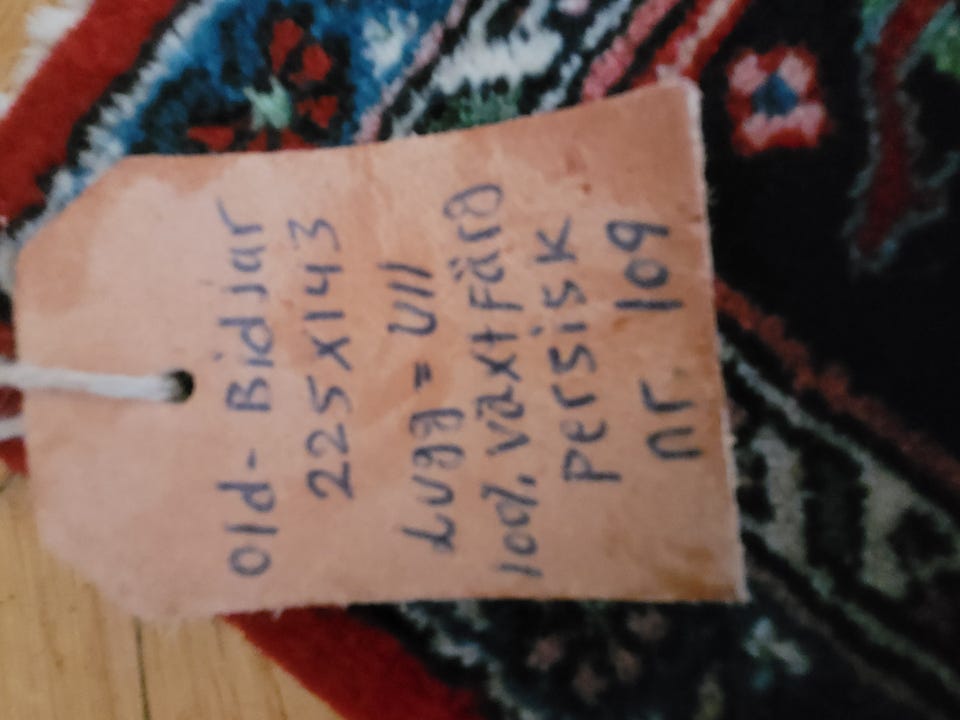 Old-Bidjar
225x143
Lugg = Ull
100% växtfärg
persisk
nr. 109